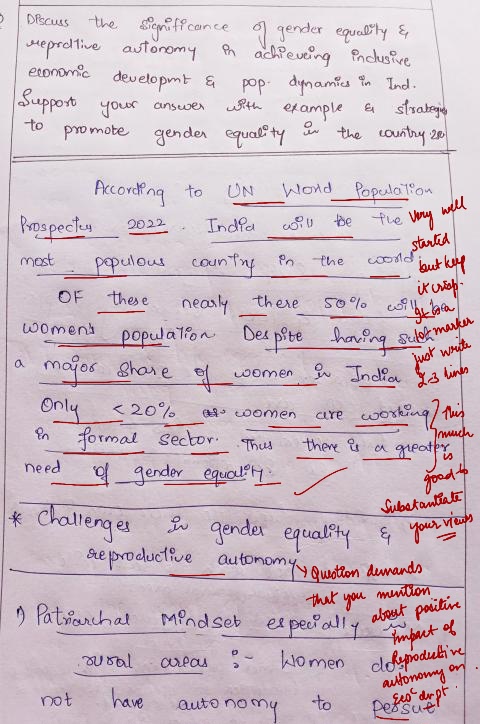 Discuss the significance of gender equality &
reprdtive autonomy in achieveing inclusive
economic developmt & pop. dynamics in Ind.
Support your answer with example & strategies
to promote gender equality in the country
According to UN World Population
Prospectus 2022. India will be the
most populous country in the world
OF these nearly there 50% will be
women's population Despite having such
a major share of women in India
Only < 20% women are working
in formal sector. Thus there is a greater
need of gender equality.
Very well
started
but keep
it crisp.
marker
just write
2-3 lines
This
much
is
good to
Substantiate
your views
* Challenges in gender equality &
reproductive autonomy
Question demands
that you mention
about positive
impact of
Reproductive
autonomy on
Eco^c dvpt.
1) Patriarchal Mindset especially in
rural areas :- Women do
not have autonomy to persue